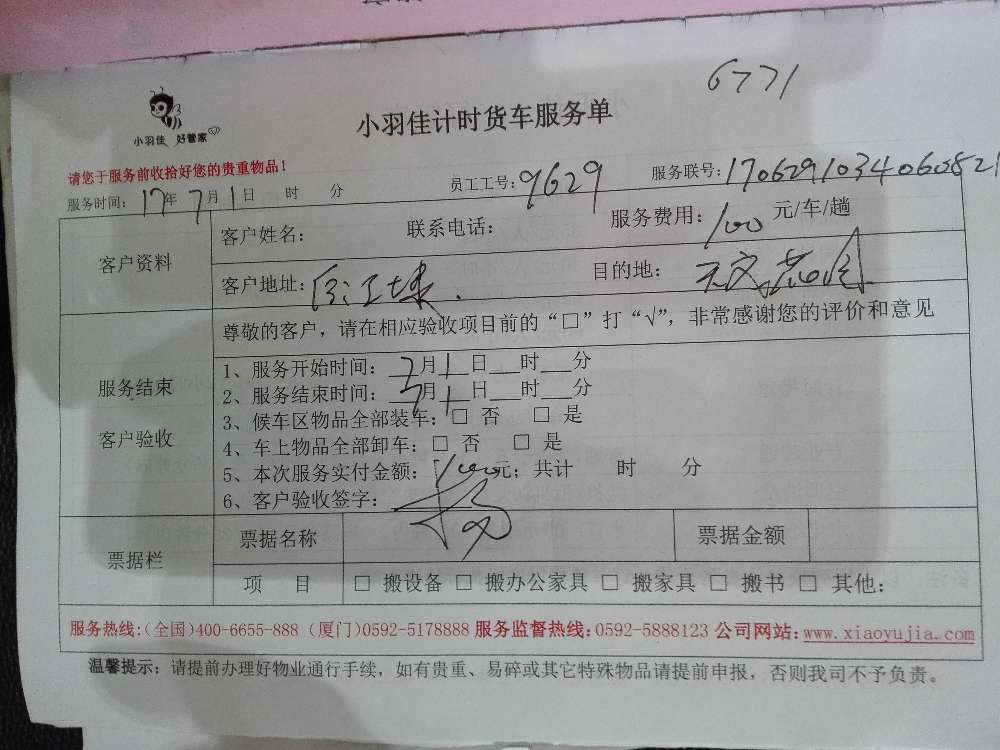 6771
小羽佳 好管家
小羽佳计时货车服务单
请您于服务前收拾好您的贵重物品！
服务时间：17年7月1日 时 分 员工工号：9629 服务联号：1706291034060821
客户资料
客户姓名： 联系电话： 服务费用：100元/车/趟
客户地址： 目的地：
服务结束
客户验收
尊敬的客户，请在相应验收项目前的“□”打“√”，非常感谢您的评价和意见
1、服务开始时间：7月1日___时___分
2、服务结束时间：7月1日___时___分
3、候车区物品全部装车：□ 否 □ 是
4、车上物品全部卸车：□ 否 □ 是
5、本次服务实付金额：100元；共计 时 分
6、客户验收签字：
票据栏
票据名称 票据金额
项 目 □ 搬设备 □ 搬办公家具 □ 搬家具 □ 搬书 □ 其他：
服务热线:(全国)400-6655-888 (厦门)0592-5178888 服务监督热线：0592-5888123 公司网站：www.xiaoyujia.com
温馨提示：请提前办理好物业通行手续，如有贵重、易碎或其它特殊物品请提前申报，否则我司不予负责。